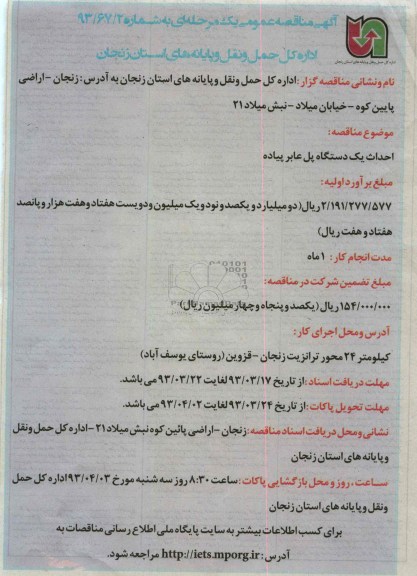 آگهی مناقصه عمومی یک مرحله‌ای به شماره ۹۳/۶۷/۲
اداره کل حمل و نقل و پایانه های استان زنجان
نام و نشانی مناقصه گزار : اداره کل حمل ونقل و پایانه های استان زنجان به آدرس : زنجان - اراضی
پایین کوه - خیابان میلاد - نبش میلاد ۲۱
موضوع مناقصه:
احداث یک دستگاه پل عابر پیاده
مبلغ برآورد اولیه:
۲/۱۹۱/۲۷۷/۵۷۷ ریال( دو میلیارد و یکصد و نود و یک میلیون و دویست هفتاد و هفت هزار و پانصد
هفتاد و هفت ریال)
مدت انجام کار : ۱ ماه
مبلغ تضمین شرکت در مناقصه:
۱۵۴/۰۰۰/۰۰۰ ریال ( یکصد و پنجاه و چهار میلیون ریال)
آدرس و محل اجرای کار:
کیلومتر ۲۴ محور ترانزیت زنجان - قزوین (روستای یوسف آباد)
مهلت دریافت اسناد : از تاریخ ۹۳/۰۳/۱۷ لغایت ۹۳/۰۳/۲۲ می باشد.
مهلت تحویل پاکات : از تاریخ ۹۳/۰۳/۲۴ لغایت ۹۳/۰۴/۰۲ می باشد.
نشانی و محل دریافت اسناد مناقصه: زنجان - اراضی پائین کوه نبش میلاد ۲۱ - اداره کل حمل ونقل
و پایانه های استان زنجان
ساعت ، روز و محل بازگشایی پاکات : ساعت ۸:۳۰ روز سه شنبه مورخ ۹۳/۰۴/۰۳ اداره کل حمل
ونقل و پایانه های استان زنجان
برای کسب اطلاعات بیشتر به سایت پایگاه ملی اطلاع رسانی مناقصات به
آدرس : http://iets.mporg.ir مراجعه شود.